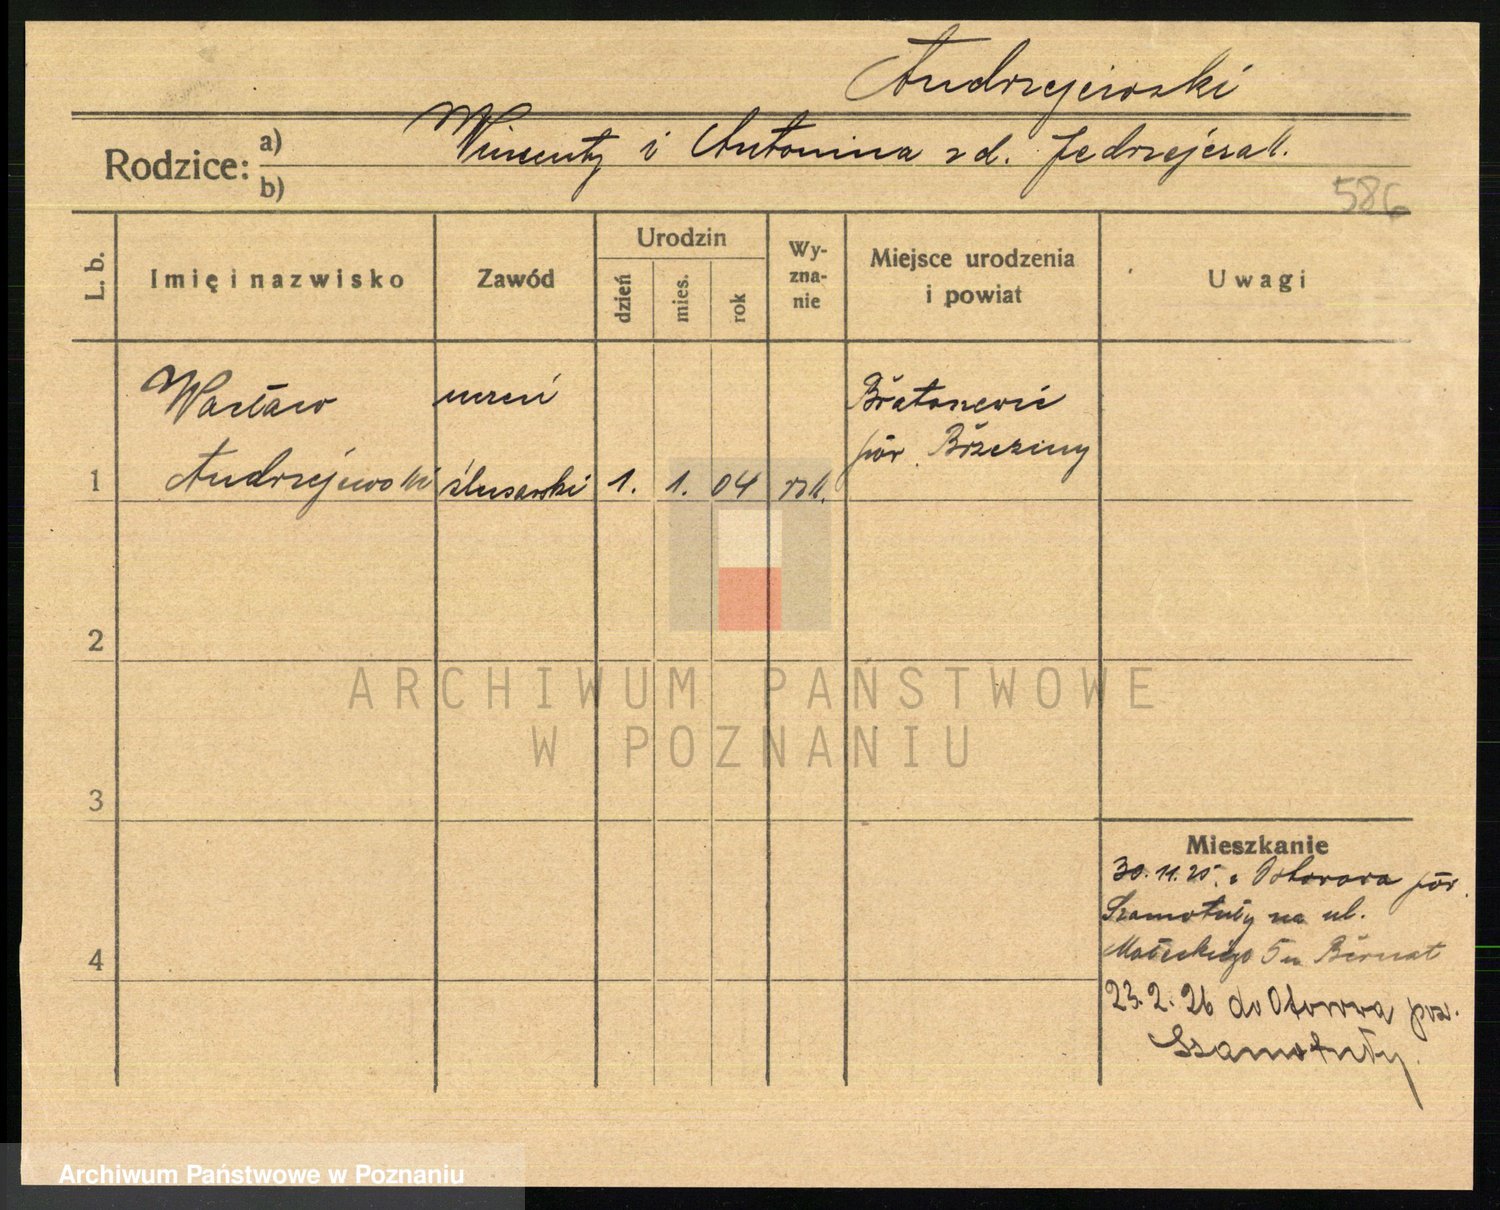 Andrzejewski
Rodzice: a) b)
Wincenty i Antonina z d. Jędrzejczak.
586
L. b.
Imię i nazwisko
Zawód
Urodzin
dzień
mies.
rok
Wy-
zna-
nie
Miejsce urodzenia
i powiat
Uwagi
Wacław
uczeń
1
Andrzejewski
ślusarski
1.
1.
04
rzk.
pow. Brzeziny
2
3
4
ARCHIWUM PAŃSTWOWE
W POZNANIU
Mieszkanie
30.11.25. z Otorowa pow.
Szamotuły na ul.
Małeckiego 5 u Biernat
23.2.26 do Otorowa pow.
Szamotuły.
Archiwum Państwowe w Poznaniu